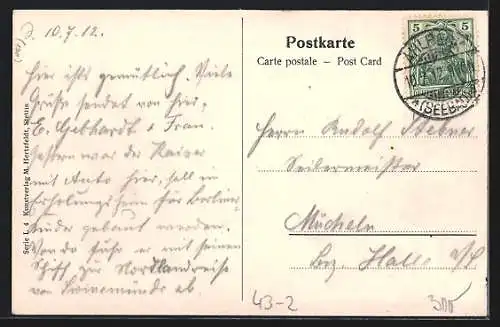 10.7.12.
Hier ists gemütlich. Viele
Grüße sendet von hier,
E. Gebhardt & Frau.
Gestern war der Kaiser
mit Auto hier, soll ein
Erholungsheim für Berliner
Kinder gebaut werden.
Von da fuhr er mit seinem
Schiff zur Nordlandreise
von Swinemünde ab.
Serie L. 4 Kunstverlag M. Herzfeldt, Stettin
Postkarte
Carte postale – Post Card
5 5
(SEEBAD)
Herrn Rudolf Stebner
Seilermeister
Mücheln
Bez. Halle a/S
43-2